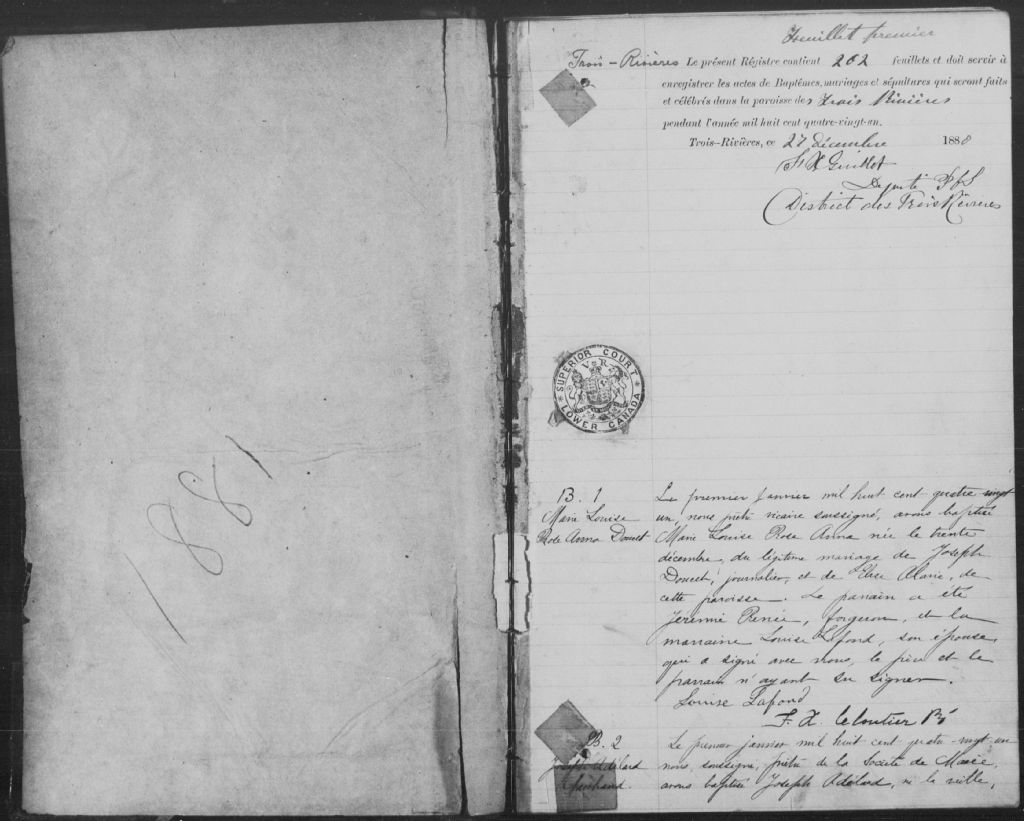 1881
Feuillet premier
Trois-Rivières Le présent Régistre contient 202 feuillets et doit servir à
enregistrer les actes de Baptêmes, mariages et sépultures qui seront faits
et célébrés dans la paroisse des Trois Rivières
pendant l'année mil huit cent quatre-vingt-un.
Trois-Rivières, ce 27 décembre 1880
F X Guillet
Deputé P C S
District des Trois Rivieres
SUPERIOR COURT
V R
LOWER CANADA
B. 1
Marie Louise
Rose Anna Doucet
Le premier janvier mil huit cent quatre vingt
un, nous prêtre vicaire soussigné, avons baptisé
Marie Louise Rose Anna née le trente
décembre, du légitime mariage de Joseph
Doucet, journalier, et de Elise Alarie, de
cette paroisse. Le parrain a été
Jérémie Renée, forgeron, et la
marraine Louise Lafond, son épouse,
qui a signé avec nous, le père et le
parrain n'ayant su signer.
Louise Lafond
F. X. Cloutier Ptre
B. 2
Joseph Adélard
Le premier janvier mil huit cent quatre-vingt-un
nous, soussigné, prêtre de la Société de Marie,
avons baptisé Joseph Adélard, né la veille,